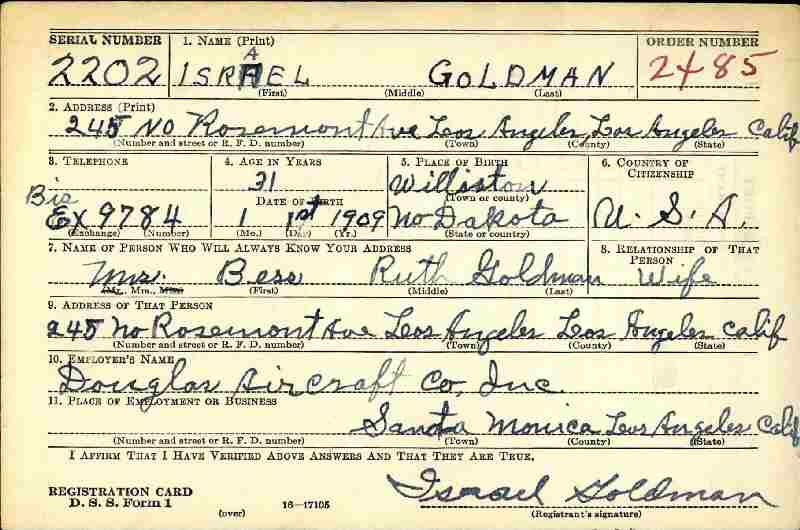 SERIAL NUMBER 1. NAME (Print) ORDER NUMBER
2202 ISRAEL GOLDMAN 2485
(First) (Middle) (Last)
2. ADDRESS (Print)
245 No Rosemont Ave Los Angeles, Los Angeles Calif
(Number and street or R. F. D. number) (Town) (County) (State)
3. TELEPHONE 4. AGE IN YEARS 5. PLACE OF BIRTH 6. COUNTRY OF CITIZENSHIP
31 Williston
(Town or county)
Bis DATE OF BIRTH
Ex 9784 1 1st 1909 No Dakota U. S. A.
(Exchange) (Number) (Mo.) (Day) (Yr.) (State or country)
7. NAME OF PERSON WHO WILL ALWAYS KNOW YOUR ADDRESS 8. RELATIONSHIP OF THAT PERSON
Mrs. Bess Ruth Goldman Wife
(Mr., Mrs., Miss) (First) (Middle) (Last)
9. ADDRESS OF THAT PERSON
245 No Rosemont Ave Los Angeles Los Angeles Calif
(Number and street or R. F. D. number) (Town) (County) (State)
10. EMPLOYER'S NAME
Douglas Aircraft Co, Inc.
11. PLACE OF EMPLOYMENT OR BUSINESS
Santa Monica Los Angeles Calif
(Number and street or R. F. D. number) (Town) (County) (State)
I AFFIRM THAT I HAVE VERIFIED ABOVE ANSWERS AND THAT THEY ARE TRUE.
REGISTRATION CARD Israel Goldman
D. S. S. Form 1 (over) 16-17105 (Registrant's signature)